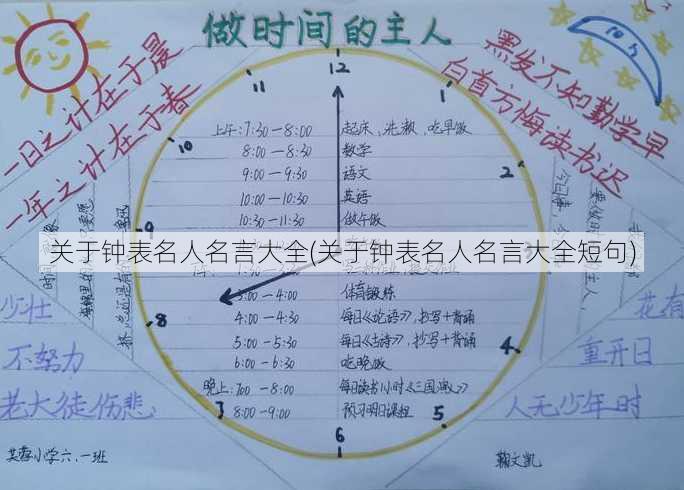 做时间的主人
一日之计在于晨
一年之计在于春
黑发不知勤学早
白首方悔读书迟
12
11
1
10
2
9
8
4
7
5
6
上午:7:30—8:00 起床、洗漱、吃早饭
8:00—8:30 数学
9:00—9:30 语文
10:00—10:30 英语
10:30—11:30 做午饭
关于钟表名人名言大全(关于钟表名人名言大全短句)
3:00—4:00 体育锻炼
4:00—4:30 每日《论语》,书写+背诵
5:00—5:30 每日《古诗》,抄写+背诵
6:00—6:30 吃晚饭
晚上:7:00—8:00 每日读书1小时《三国演义》
8:00—9:00 预习明日课程
少壮
不努力
老大徒伤悲
花有
重开日
人无少年时
芙蓉小学六.一班
鞠文凯